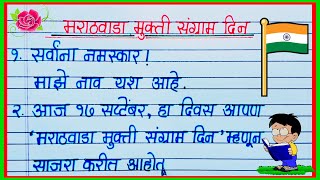 मराठवाडा मुक्ती संग्राम दिन
१. सर्वाना नमस्कार!
माझे नाव यश आहे.
२. आज १७ सप्टेंबर, हा दिवस आपण
'मराठवाडा मुक्ती संग्राम दिन' म्हणून
साजरा करीत आहोत